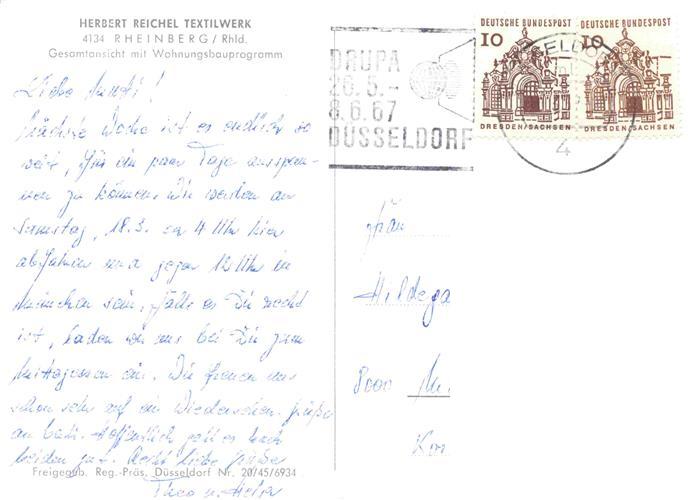 HERBERT REICHEL TEXTILWERK
4134 RHEINBERG / Rhld.
Gesamtansicht mit Wohnungsbauprogramm
Liebe !
nächste Woche ist es endlich so
weit, für ein paar Tage ausspan-
nen zu können. Wir werden am
Samstag, 18.3. ca 4 Uhr hier
abfahren und gegen 12 Uhr in
München sein, falls es Dir recht
ist, laden wir uns bei Dir zum
Mittagessen ein. Wir freuen uns
schon sehr auf ein Wiedersehen. Grüße
an Hoffentlich geht es Euch
beiden gut. Recht liebe Grüße
Theo u.
Freigegeb. Reg.-Präs. Düsseldorf Nr. 20/45/6934
DRUPA
26.5.-
8.6.67
DÜSSELDORF
DEUTSCHE BUNDESPOST
10
DRESDEN/SACHSEN
DEUTSCHE BUNDESPOST
10
DRESDEN/SACHSEN
SSELDOR
4
Frau
Hildega
8000 Mü